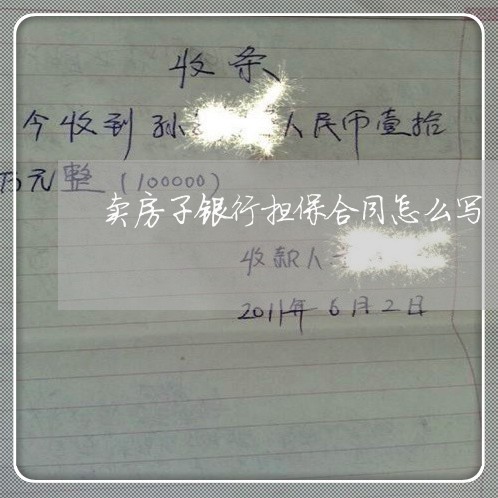 收条
今收到孙人民币壹拾
万元整(100000)
卖房子银行担保合同怎么写
收款人
2011年6月2日